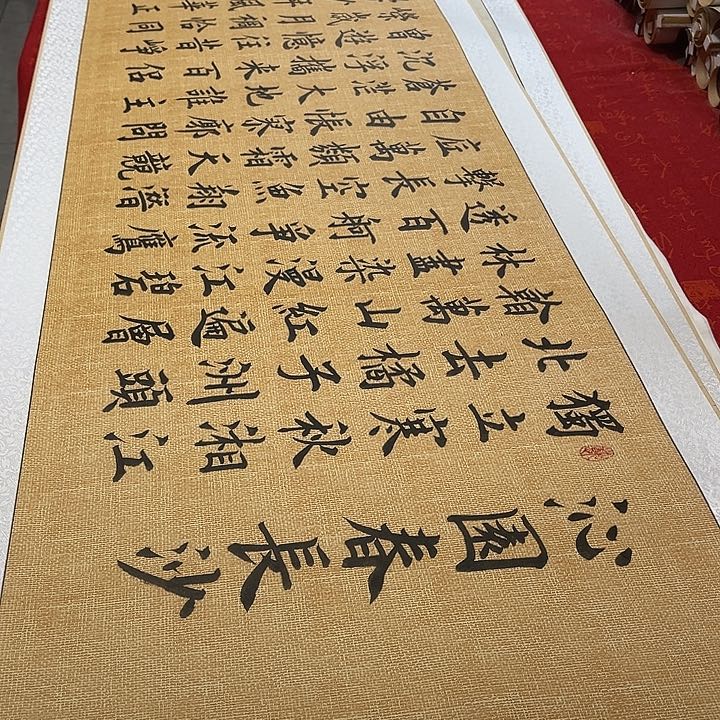 沁園春長沙
獨立寒秋湘江
北去橘子洲頭
翰萬山紅遍層
林盡染漫江碧
透百舸爭流鷹
擊長空魚翔潛
底萬類霜天競
自由悵寥廓問
蒼茫大地誰主
沉浮攜來百侶
曾遊憶往昔崢
嶸歲月稠恰同
少年風華正